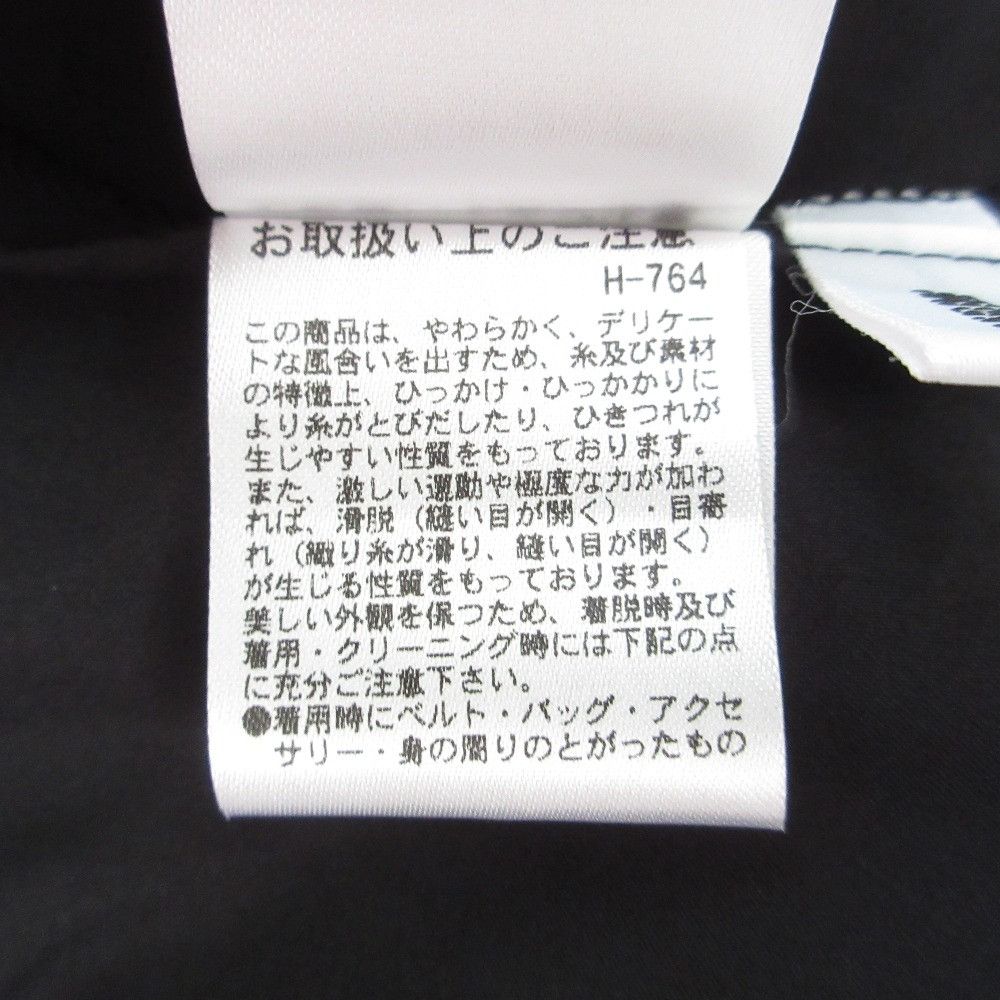 お取扱い上のご注意
H-764
この商品は、やわらかく、デリケー
トな風合いを出すため、糸及び素材
の特徴上、ひっかけ・ひっかかりに
より糸がとびだしたり、ひきつれが
生じやすい性質をもっております。
また、激しい運動や極度な力が加わ
れば、滑脱（縫い目が開く）・目寄
れ（織り糸が滑り、縫い目が開く）
が生じる性質をもっております。
美しい外観を保つため、着脱時及び
着用・クリーニング時には下記の点
に充分ご注意下さい。
●着用時にベルト・バッグ・アクセ
サリー・身の周りのとがったもの